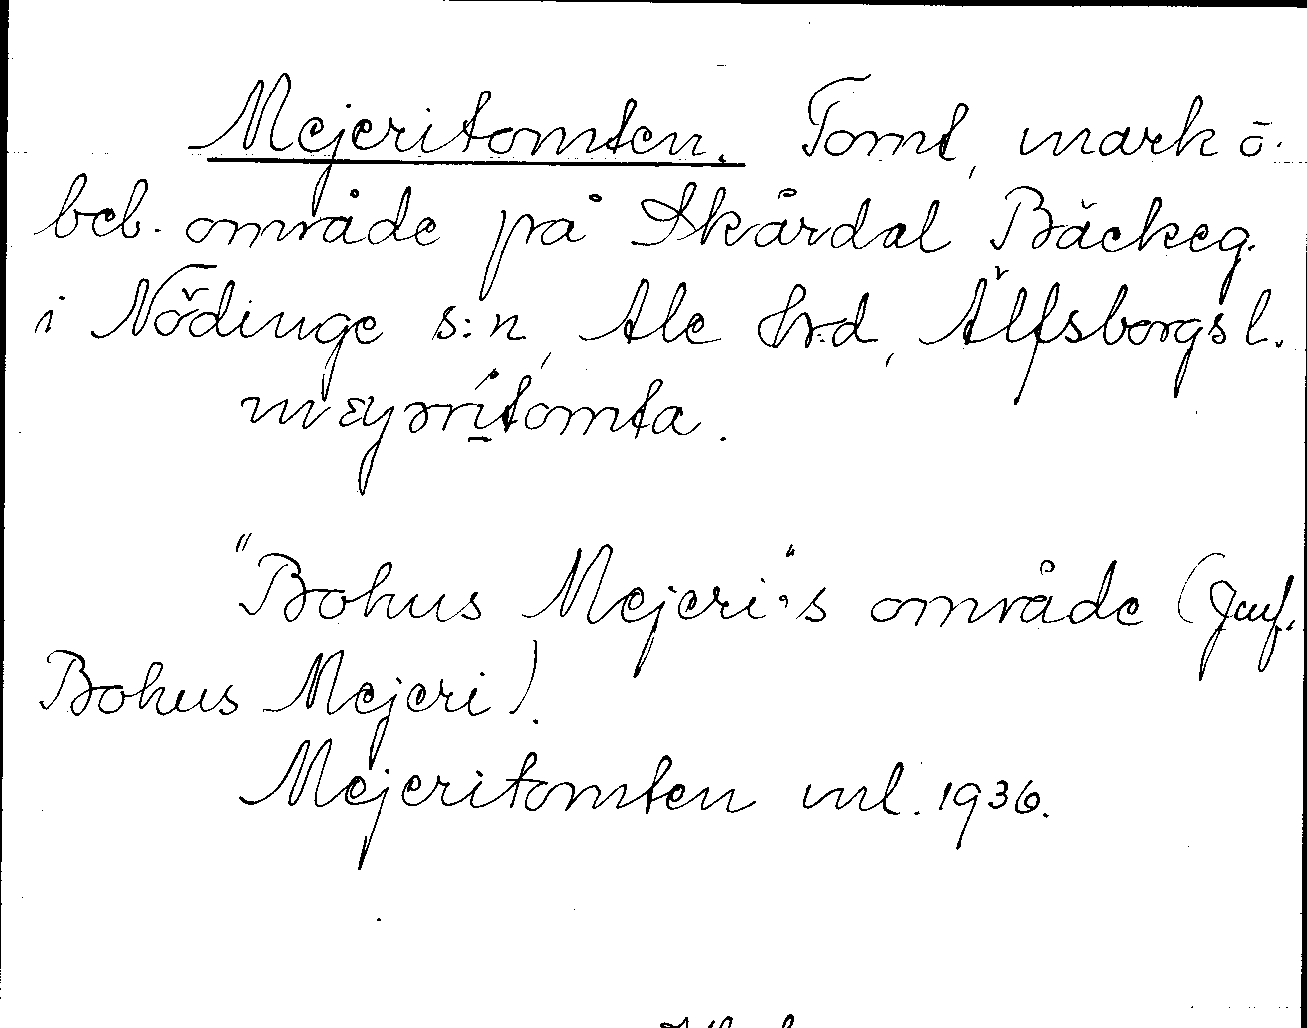 Mejeritomten. Tomt, mark o.
beb. område på Skårdal Bäckeg.
i Nödinge s:n, Ale hrd, Älfsborgs l.
mɛyərìtomta.
"Bohus Mejeri":s område (Jmf.
Bohus Mejeri).
Mejeritomten unl. 1936.